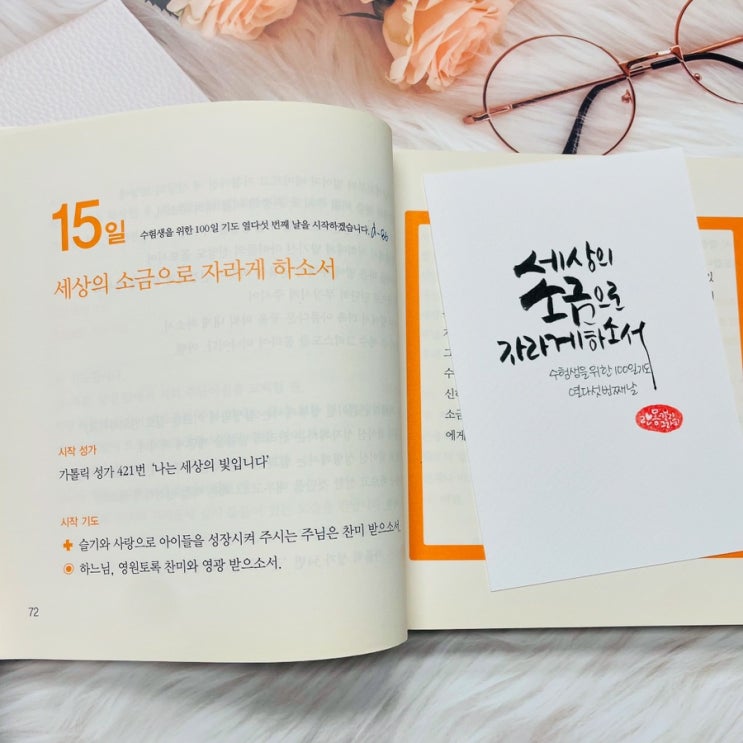 15일
수험생을 위한 100일 기도 열다섯 번째 날을 시작하겠습니다. d-86
세상의 소금으로 자라게 하소서
시작 성가
가톨릭 성가 421번 '나는 세상의 빛입니다'
시작 기도
슬기와 사랑으로 아이들을 성장시켜 주시는 주님은 찬미 받으소서.
하느님, 영원토록 찬미와 영광 받으소서.
72
세상의
소금으로
자라게하소서
수험생을 위한 100일기도
열다섯번째날
그
수
신
소금
에게